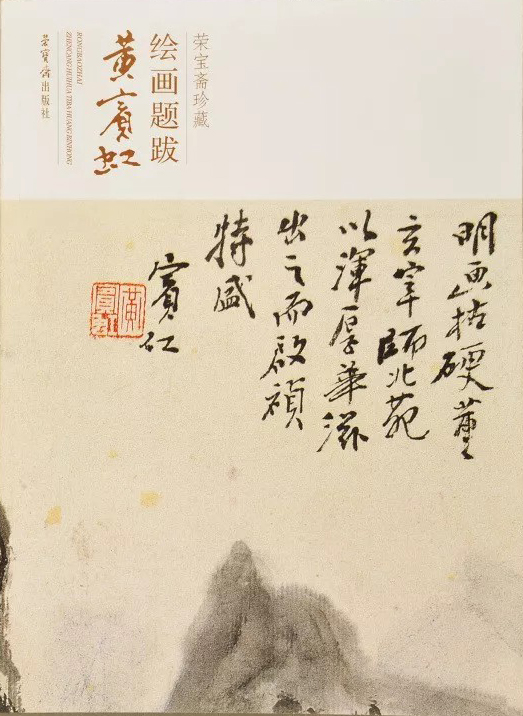 荣宝斋珍藏
绘画题跋
黃賓虹
RONGBAOZHAI
ZHENCANG HUIHUA TIBA HUANG BINHONG
榮寶齋出版社
明画枯硬董
玄宰師北苑
以渾厚華滋
出之而啟禎
特盛
賓虹
黄賓虹